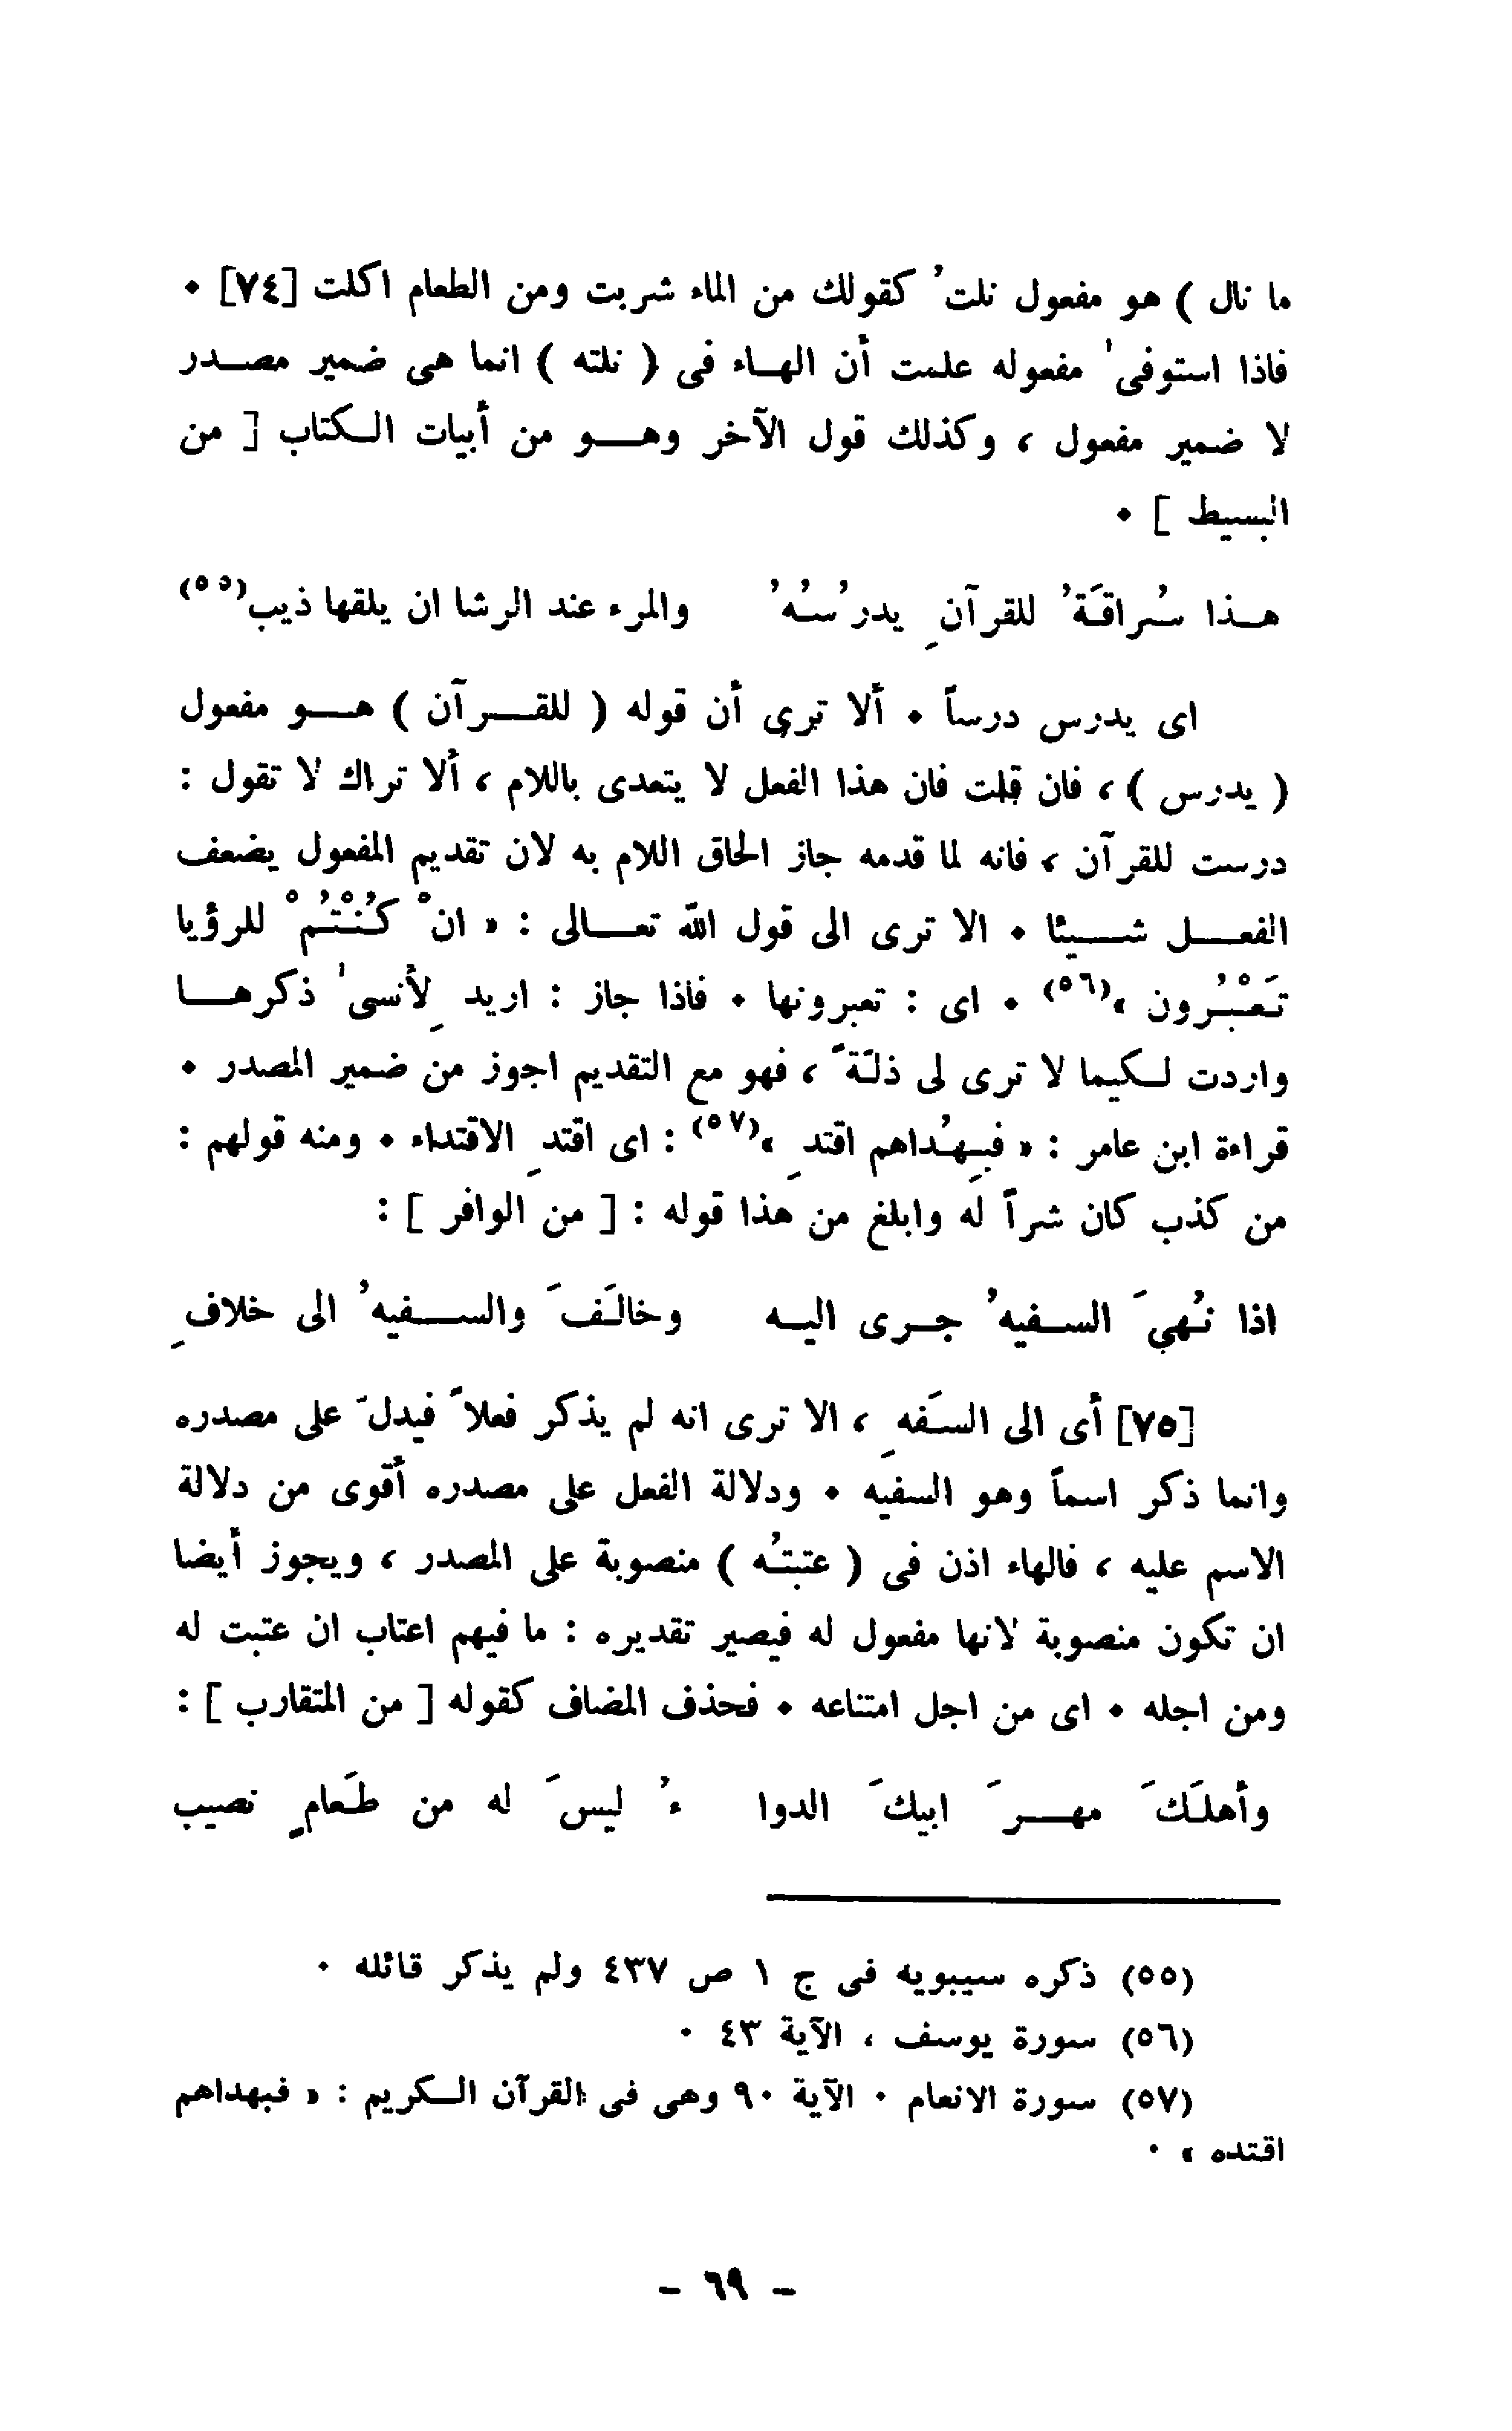 ما نال ) هو مفعول نلتُ كقولك من الماء شربت ومن الطعام اكلت [٧٤] ٠
فاذا استوفى' مفعوله علمت أن الهـاء فى ( نلته ) انما هى ضمير مصـدر
لا ضمير مفعول ، وكذلك قول الآخر وهـــو من أبيات الـكتاب [ من
البسيط ] ٠
هـذا سُراقَةُ للقرآنِ يدرُسُهُ والمرء عند الرشا ان يلقها ذيب(٥٥)
اى يدرس درساً ٠ ألا ترى أن قوله ( للقـــرآن ) هـــو مفعول
( يدرس ) ، فان قلت فان هذا الفعل لا يتعدى باللام ، ألا تراك لا تقول :
درست للقرآن ، فانه لما قدمه جاز الحاق اللام به لان تقديم المفعول يضعف
الفعـــل شـــيئا ٠ الا ترى الى قول الله تعـــالى : « انْ كُنْتُمْ للرؤيا
تَعْبُرون »(٥٦) ٠ اى : تعبرونها ٠ فاذا جاز : اريد لِأنسى' ذكرهـــا
واردت لـكيما لا ترى لى ذلّةً ، فهو مع التقديم اجوز من ضمير المصدر ٠
قراءة ابن عامر : « فبِهُداهم اقتدِ »(٥٧) : اى اقتدِ الاقتداء ٠ ومنه قولهم :
من كذب كان شراً له وابلغ من هذا قوله : [ من الوافر ] :
اذا نُهيَ السـفيهُ جـرى اليـه وخالَفَ والســـفيهُ الى خلافِ
[٧٥] أى الى السَفهِ ، الا ترى انه لم يذكر فعلاً فيدلَ على مصدره
وانما ذكر اسماً وهو السفيه ٠ ودلالة الفعل على مصدره أقوى من دلالة
الاسم عليه ، فالهاء اذن فى ( عتبتُه ) منصوبة على المصدر ، ويجوز أيضا
ان تكون منصوبة لانها مفعول له فيصير تقديره : ما فيهم اعتاب ان عتبت له
ومن اجله ٠ اى من اجل امتناعه ٠ فحذف المضاف كقوله [ من المتقارب ] :
وأهلَكَ مهـــرَ ابيكَ الدوا ءُ ليسَ له من طَعامٍ نصيب
(٥٥) ذكره سيبويه فى ج ١ ص ٤٣٧ ولم يذكر قائله ٠
(٥٦) سورة يوسف ، الآية ٤٣ ٠
(٥٧) سورة الانعام ٠ الآية ٩٠ وهى فى القرآن الـكريم : « فبهداهم
اقتده » ٠
- ٦٩ -